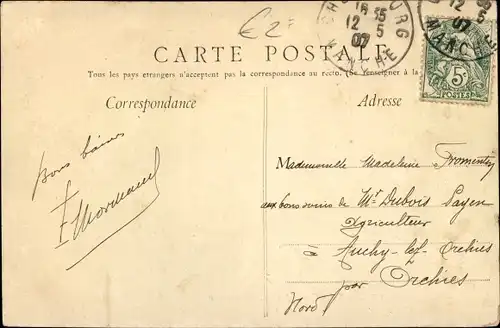 € 2=
CHERBOURG
16 35
12 5
07
MANCHE
CARTE POSTALE
Tous les pays etrangers n'acceptent pas la correspondance au recto. (Se renseigner à la
Correspondance
Adresse
5
POSTES
12 5
07
MANCHE
Bons baisers
Mademoiselle Madeleine Fromentin
aux bons soins de Mr Dubois Payen
Agriculteur
à Auchy-lez-Orchies
par Orchies
Nord